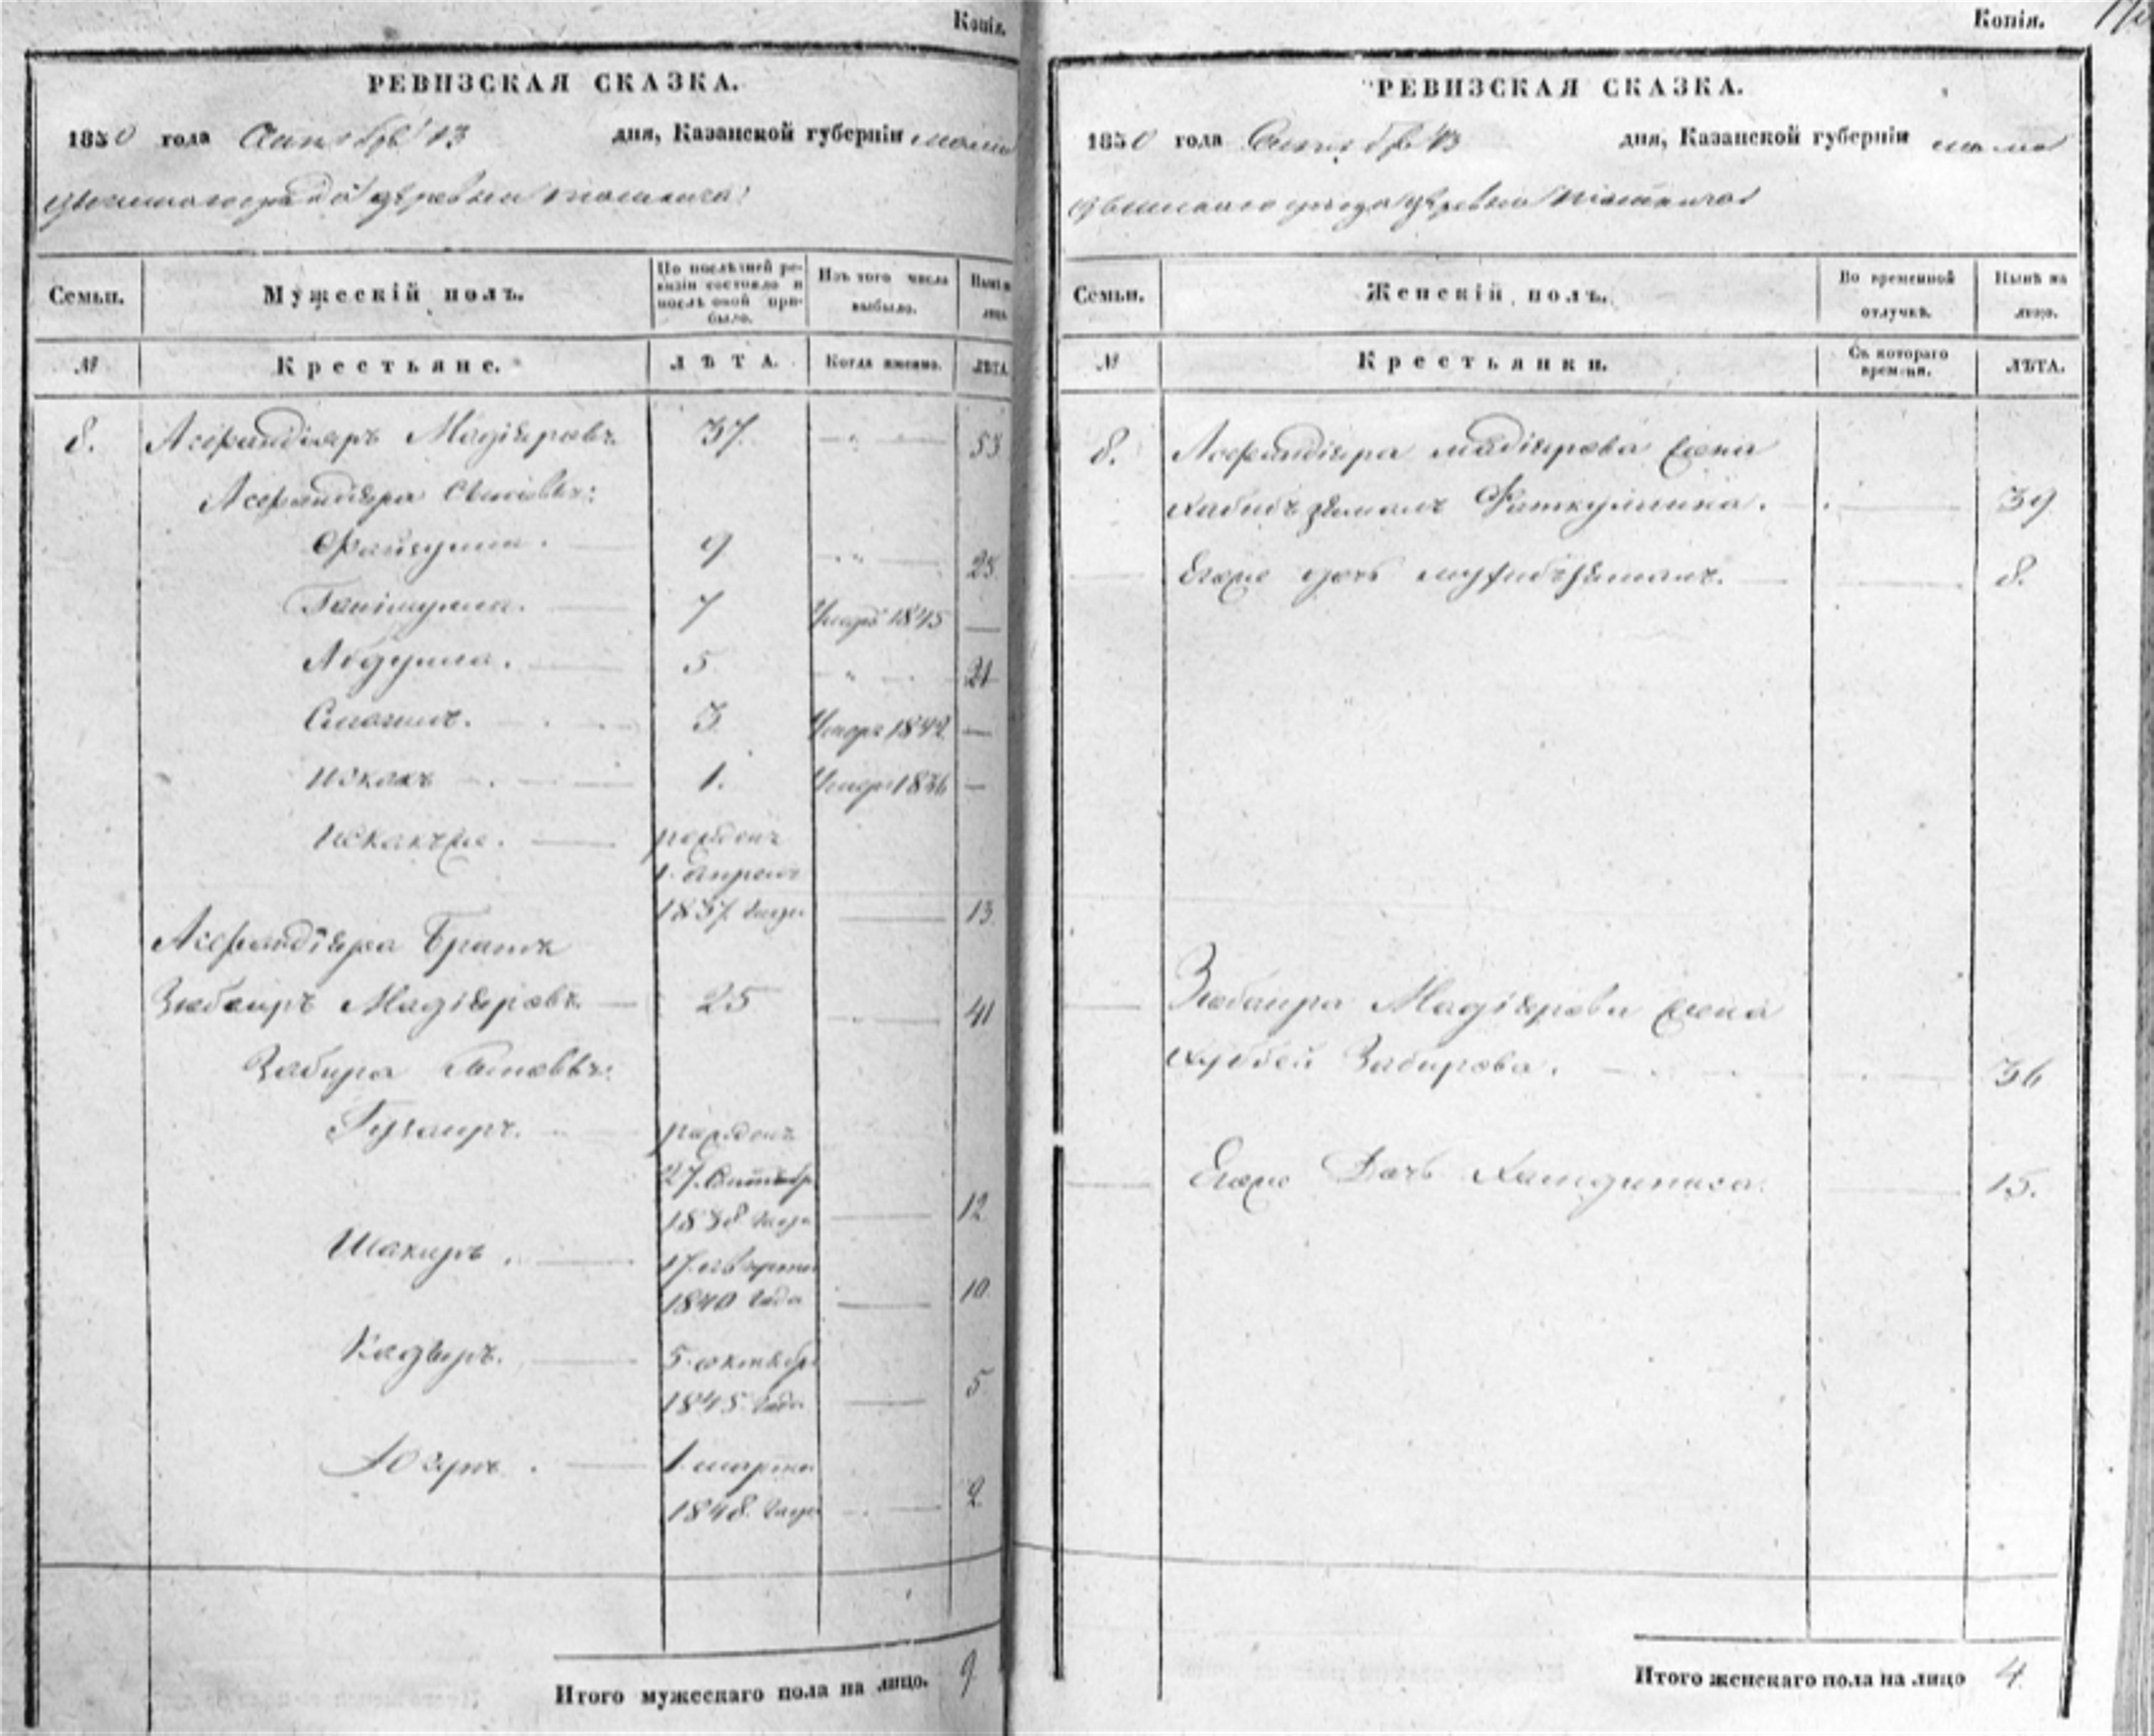 Копія.
РЕВИЗСКАЯ СКАЗКА.
1850 года Сентября 13 дня, Казанской губерніи мама
дышскаго уезда деревни
Семьи.
Мужескій полъ.
По послѣдней ре-
визіи состояло и
послѣ оной при-
было.
Изъ того числа
выбыло.
Нынѣ на
лицо.
№
Крестьяне.
ЛѢТА.
Когда именно.
ЛѢТА.
8. Асфандіяръ Мадіяровъ 37. 53
Асфандіяра Сыновья:
Файзулла. 9 25
7 1845 —
Абдулла. 5 21
3 1842 —
Исхакъ 1. 1836 —
рожденъ
1 апреля
1837 года 13
Асфандіяра Братъ
Зюбаиръ Мадіяровъ 25 41
Забира Сыновья:
рожденъ
27 Сентябр
1838 года 12
Шакиръ.
17
1840 года 10
Кадыръ. 5 октября
1845 года 5
1 марта
1848 года 2
Итого мужескаго пола на лицо. 9
Копія.
РЕВИЗСКАЯ СКАЗКА.
1850 года Сентября 13 дня, Казанской губерніи мама
дышскаго уезда деревни
Семьи.
Женскій полъ.
Во временной
отлучкѣ.
Нынѣ на
лицо.
№
Крестьянки.
Съ котораго
времени.
ЛѢТА.
8. Асфандіяра Мадіярова жена
Фаткуллина. 39
Егоже дочь 8.
Зюбаира Мадіярова жена
Забирова. 36
Егоже Дочь 15.
Итого женскаго пола на лицо 4